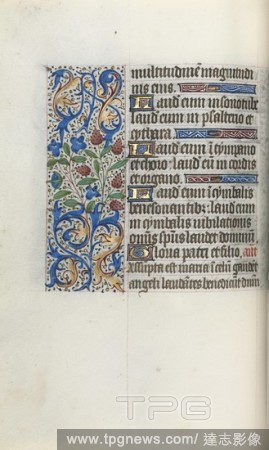 multitudinē magnitudi
nis eius.
Laud eum in sono tube
laud eum in psalterio et
cythara
Laud eum ī tympano
et choro: laud eū in cordis
et organo.
Laud eum ī cymbalis
benesonantibꝫ: laud eum
in cymbalis iubilationis
omīs spūs laudet dominū
Gloria patri et filio. añt
Assūpta est maria ī celū gaudēt
angeli laudātes benedicūt dnm
TPG
www.tpgnews.com / 達志影像